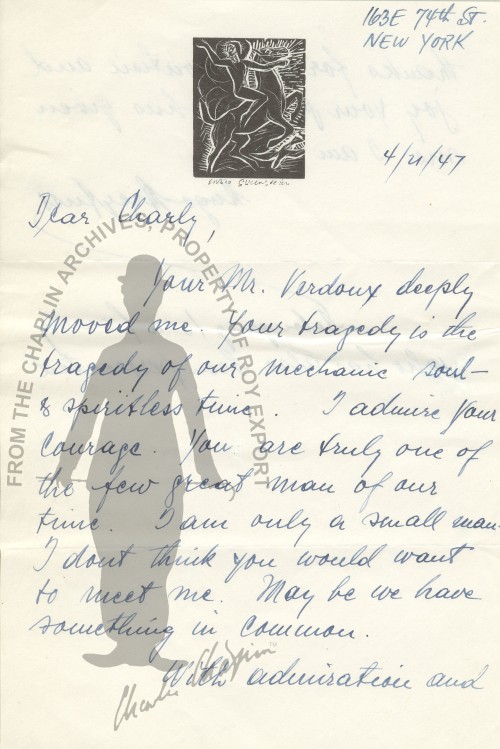 163E 74th St.
NEW YORK
4/21/47
Dear Charly,
Your Mr. Verdoux deeply
moved me. Your tragedy is the
tragedy of our mechanic soul-
& spiritless time. I admire your
courage. You are truly one of
the few great man of our
time. I am only a small man.
I dont think you would want
to meet me. May be we have
something in common.
With admiration and
FROM THE CHAPLIN ARCHIVES, PROPERTY OF ROY EXPORT
Charlie Chaplin™